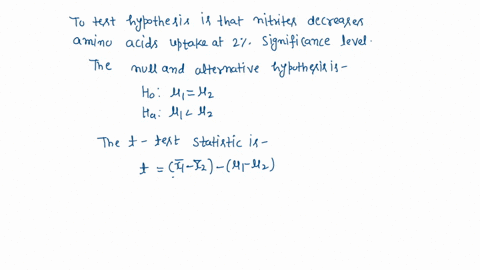 To test hypothesis is that nitrites decreases
amino acids uptake at 2% significance level.
The null and alternative hypothesis is-
H₀: μ₁ = μ₂
Ha: μ₁ < μ₂
The t - test statistic is-
t = (x̄₁-x̄₂) - (μ₁-μ₂)